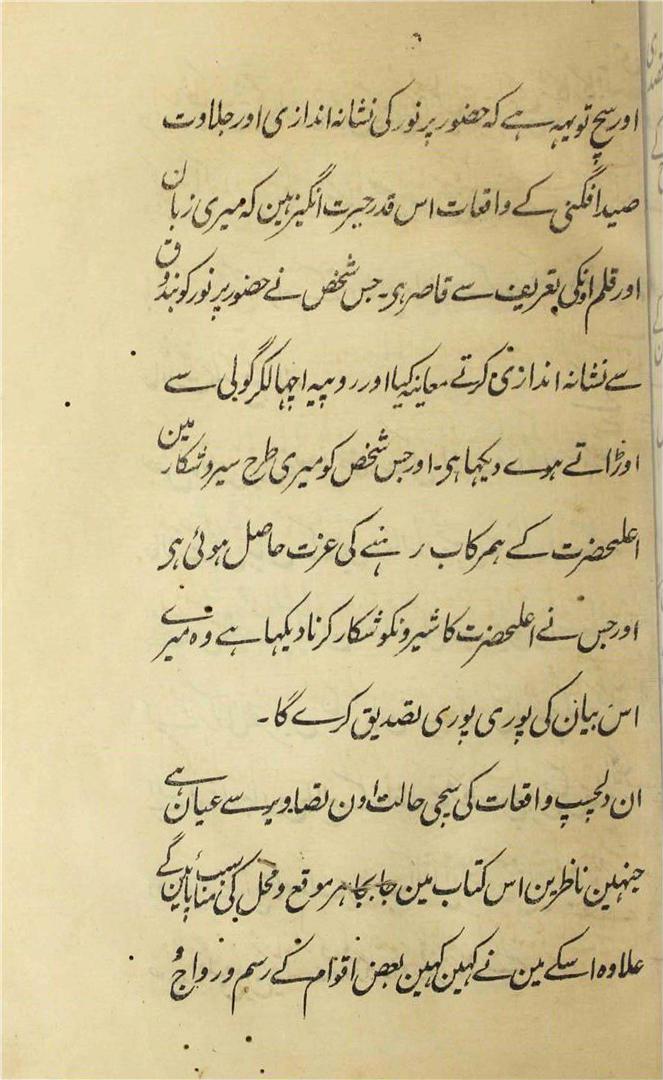 اور سچ تو یہہ ہے کہ حضور پر نور کی نشانہ اندازی اور جلاوت
صید افگنی کے واقعات اس قدر حیرت انگیز ہین کہ میری زبان
اور قلم اونکی تعریف سے قاصر ہی۔ جس شخص نے حضور پر نور کو بندوق
سے نشانہ اندازی کرتے معاینہ کیا اور روپیہ اچہالکر گولی سے
اوڑاتے ہوے دیکہا ہی۔ اور جس شخص کو میری طرح سیر و شکار مین
اعلیحضرت کے ہمرکاب رہنے کی عزت حاصل ہوئی ہی
اور جس نے اعلیحضرت کا شیرونکو شکار کرنا دیکہا ہے وہ میرے
اس بیان کی پوری پوری تصدیق کرے گا۔
ان دلچسپ واقعات کی سچی حالت اون تصاویر سے عیان ہے
جنہین ناظرین اس کتاب مین جابجا ہر موقع و محل کی مناسب پائینگے
علاوہ اسکے مین نے کہین کہین بعض اقوام کے رسم و رواج و